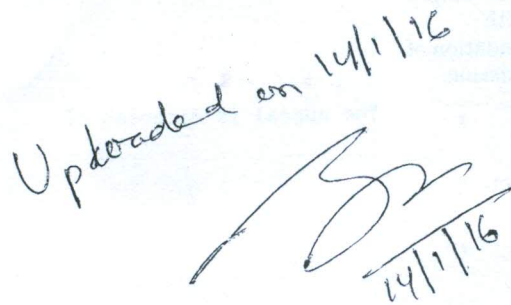 Uploaded on 14/1/16
14/1/16